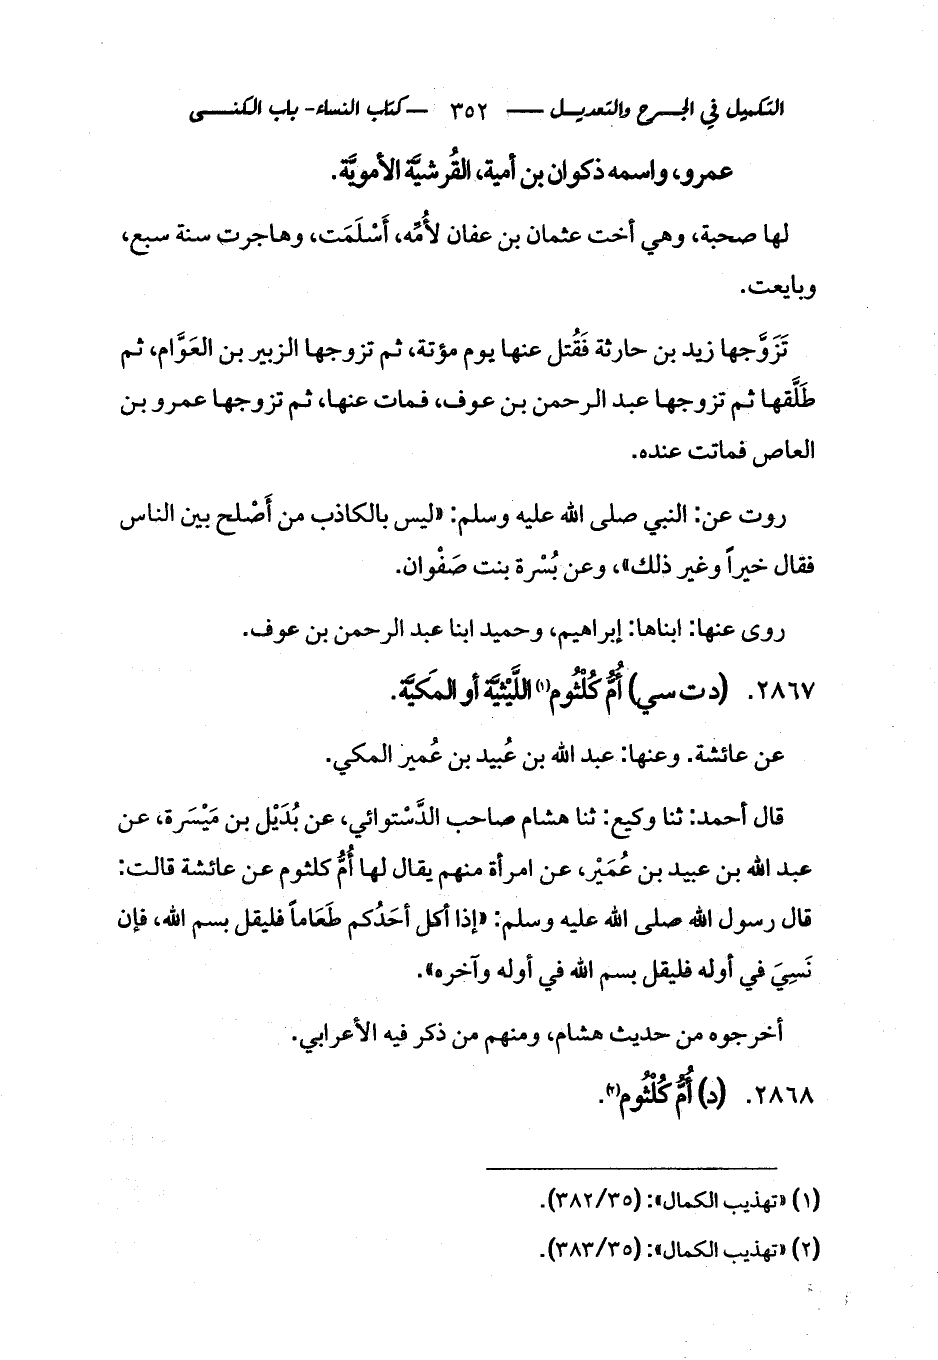 التكميل في الجرح والتعديل — ٣٥٢ — كتاب النساء- باب الكنى
عمرو، واسمه ذكوان بن أمية، القُرشيَّة الأمويَّة.
لها صحبة، وهي أخت عثمان بن عفان لأُمِّه، أَسْلَمَت، وهاجرت سنة سبع،
وبايعت.
تَزَوَّجها زيد بن حارثة فَقُتل عنها يوم مؤتة، ثم تزوجها الزبير بن العَوَّام، ثم
طَلَّقها ثم تزوجها عبد الرحمن بن عوف، فمات عنها، ثم تزوجها عمرو بن
العاص فماتت عنده.
روت عن: النبي صلى الله عليه وسلم: «ليس بالكاذب من أَصْلح بين الناس
فقال خيراً وغير ذلك»، وعن بُسْرة بنت صَفْوان.
روى عنها: ابناها: إبراهيم، وحميد ابنا عبد الرحمن بن عوف.
٢٨٦٧. (د ت سي) أُمُّ كُلْثُوم(١) اللَّيْثيَّة أو المَكيَّة.
عن عائشة. وعنها: عبد الله بن عُبيد بن عُمير المكي.
قال أحمد: ثنا وكيع: ثنا هشام صاحب الدَّسْتوائي، عن بُدَيْل بن مَيْسَرة، عن
عبد الله بن عبيد بن عُمَيْر، عن امرأة منهم يقال لها أُمُّ كلثوم عن عائشة قالت:
قال رسول الله صلى الله عليه وسلم: «إذا أكل أحَدُكم طَعَاماً فليقل بسم الله، فإن
نَسِيَ في أوله فليقل بسم الله في أوله وآخره».
أخرجوه من حديث هشام، ومنهم من ذكر فيه الأعرابي.
٢٨٦٨. (د) أُمُّ كُلْثُوم(٢).
(١) «تهذيب الكمال»: (٣٨٢/٣٥).
(٢) «تهذيب الكمال»: (٣٨٣/٣٥).